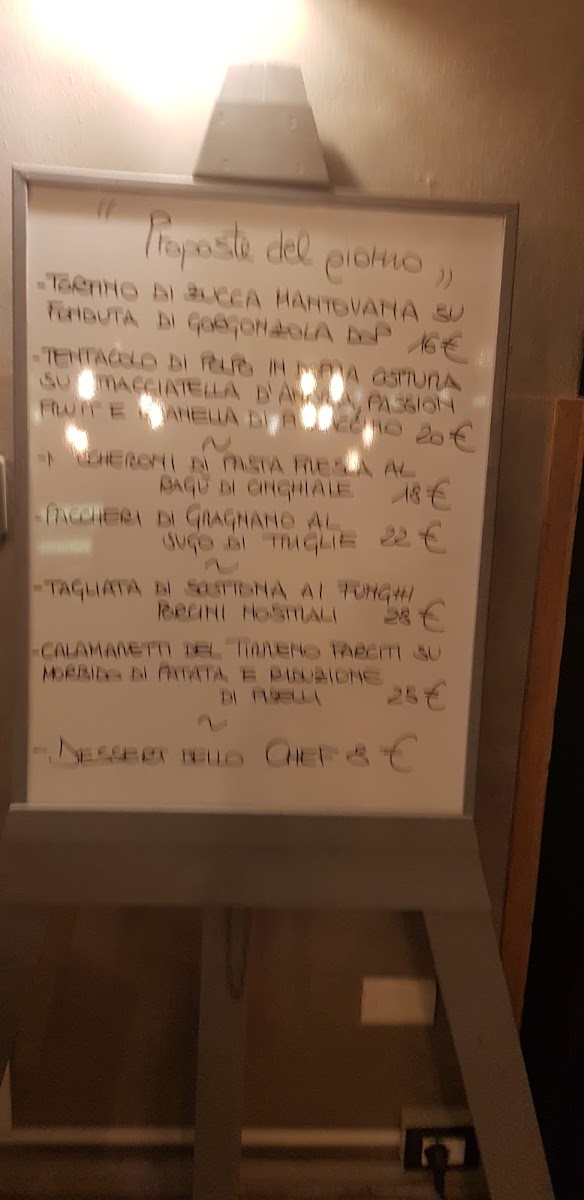 " Proposte del giorno "
- TORTINO DI ZUCCA MANTOVANA SU
FONDUTA DI GORGONZOLA DOP 16 €
- TENTACOLO DI POLPO IN DOPPIA COTTURA
SU STRACCIATELLA D'ANDRIA, PASSION
FRUIT E GRANELLA DI PISTACCHIO 20 €
~
- MACCHERONI DI PASTA FRESCA AL
RAGÙ DI CINGHIALE 18 €
- PACCHERI DI GRAGNANO AL
SUGO DI TRIGLIE 22 €
~
- TAGLIATA DI SCOTTONA AI FUNGHI
PORCINI NOSTRALI 28 €
- CALAMARETTI DEL TIRRENO FARCITI SU
MORBIDO DI PATATA E RIDUZIONE
DI PISELLI 25 €
~
- DESSERT DELLO CHEF 8 €